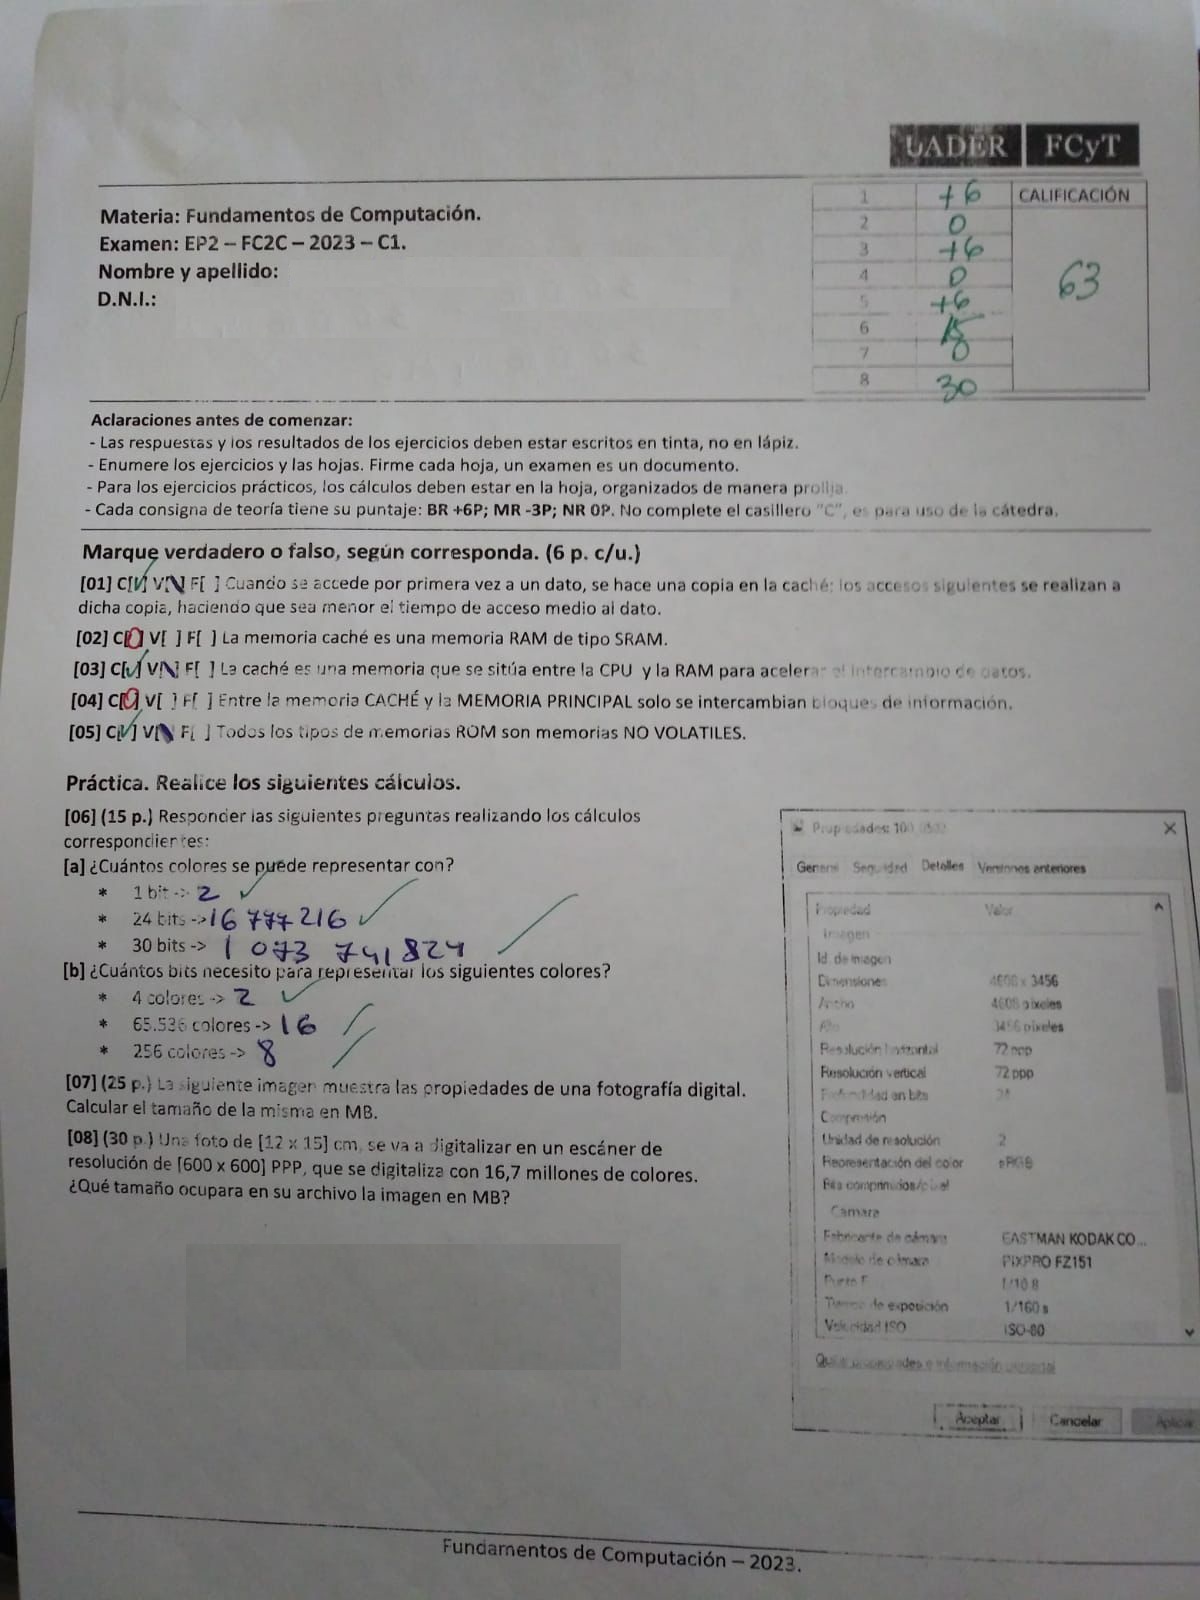 UADER FCyT
Materia: Fundamentos de Computación.
Examen: EP2 – FC2C – 2023 – C1.
Nombre y apellido:
D.N.I.:
1 +6 CALIFICACIÓN
2 0
3 +6
4 0
5 +6
6 15
7 0
8 30
63
Aclaraciones antes de comenzar:
- Las respuestas y los resultados de los ejercicios deben estar escritos en tinta, no en lápiz.
- Enumere los ejercicios y las hojas. Firme cada hoja, un examen es un documento.
- Para los ejercicios prácticos, los cálculos deben estar en la hoja, organizados de manera prolija.
- Cada consigna de teoría tiene su puntaje: BR +6P; MR -3P; NR 0P. No complete el casillero "C", es para uso de la cátedra.
Marque verdadero o falso, según corresponda. (6 p. c/u.)
[01] C[✓] V[\] F[ ] Cuando se accede por primera vez a un dato, se hace una copia en la caché; los accesos siguientes se realizan a
dicha copia, haciendo que sea menor el tiempo de acceso medio al dato.
[02] C[0] V[ ] F[ ] La memoria caché es una memoria RAM de tipo SRAM.
[03] C[✓] V[\] F[ ] La caché es una memoria que se sitúa entre la CPU y la RAM para acelerar el intercambio de datos.
[04] C[0] V[ ] F[ ] Entre la memoria CACHÉ y la MEMORIA PRINCIPAL solo se intercambian bloques de información.
[05] C[✓] V[\] F[ ] Todos los tipos de memorias ROM son memorias NO VOLATILES.
Práctica. Realice los siguientes cálculos.
[06] (15 p.) Responder las siguientes preguntas realizando los cálculos
correspondientes:
[a] ¿Cuántos colores se puede representar con?
* 1 bit -> 2 ✓
* 24 bits -> 16 777 216 ✓
* 30 bits -> 1 073 741 824
[b] ¿Cuántos bits necesito para representar los siguientes colores?
* 4 colores -> 2 ✓
* 65.536 colores -> 16
* 256 colores -> 8
[07] (25 p.) La siguiente imagen muestra las propiedades de una fotografía digital.
Calcular el tamaño de la misma en MB.
[08] (30 p.) Una foto de [12 x 15] cm, se va a digitalizar en un escáner de
resolución de [600 x 600] PPP, que se digitaliza con 16,7 millones de colores.
¿Qué tamaño ocupara en su archivo la imagen en MB?
Propiedades: 100
General Seguridad Detalles Versiones anteriores
Propiedad Valor
Imagen
Id. de imagen
Dimensiones 4608 x 3456
Ancho 4608 píxeles
Alto 3456 píxeles
Resolución horizontal 72 ppp
Resolución vertical 72 ppp
Profundidad en bits 24
Compresión
Unidad de resolución 2
Representación del color sRGB
Bits comprimidos/píxel
Cámara
Fabricante de cámara EASTMAN KODAK CO...
Modelo de cámara PIXPRO FZ151
Punto F
Tiempo de exposición 1/160 s
Velocidad ISO ISO-80
Quitar propiedades e información personal
Aceptar Cancelar Aplicar
Fundamentos de Computación – 2023.